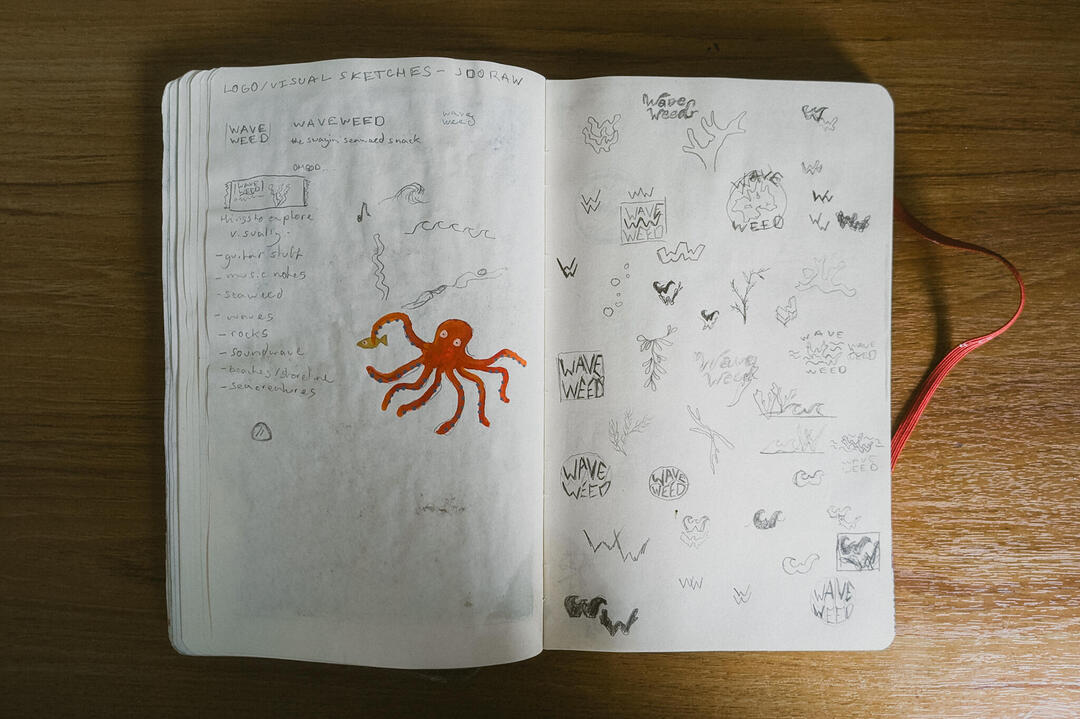 LOGO/VISUAL SKETCHES - JOORAW
WAVE
WEED
WAVEWEED
the swayin seaweed snack
wave
weed
WAVE
WEED
things to explore
visually.
- guitar stuff
- music notes
- seaweed
- waves
- rocks
- soundwave
- beaches/shoreline
- sea creatures
Wave
Weeds
W
W
WAVE
WEED
WAVE
WEED
W
W
WW
W
WAVE
WEED
Wave
Weed
WAVE
WEED
WAVE
WEED
WAVE
WEED
WAVE
WEED
WAVE
WEED
WW
WW
W
WAVE
WEED